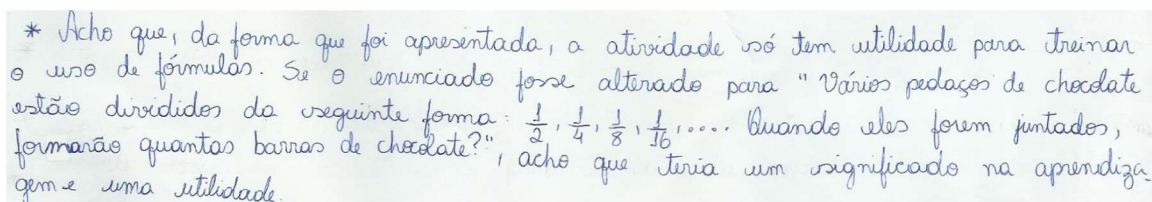 * Acho que, da forma que foi apresentada, a atividade só tem utilidade para treinar
o uso de fórmulas. Se o enunciado fosse alterado para "Vários pedaços de chocolate
estão divididos da seguinte forma: 1/2, 1/4, 1/8, 1/16, .... Quando eles forem juntados,
formarão quantas barras de chocolate?", acho que teria um significado na aprendiza-
gem e uma utilidade.